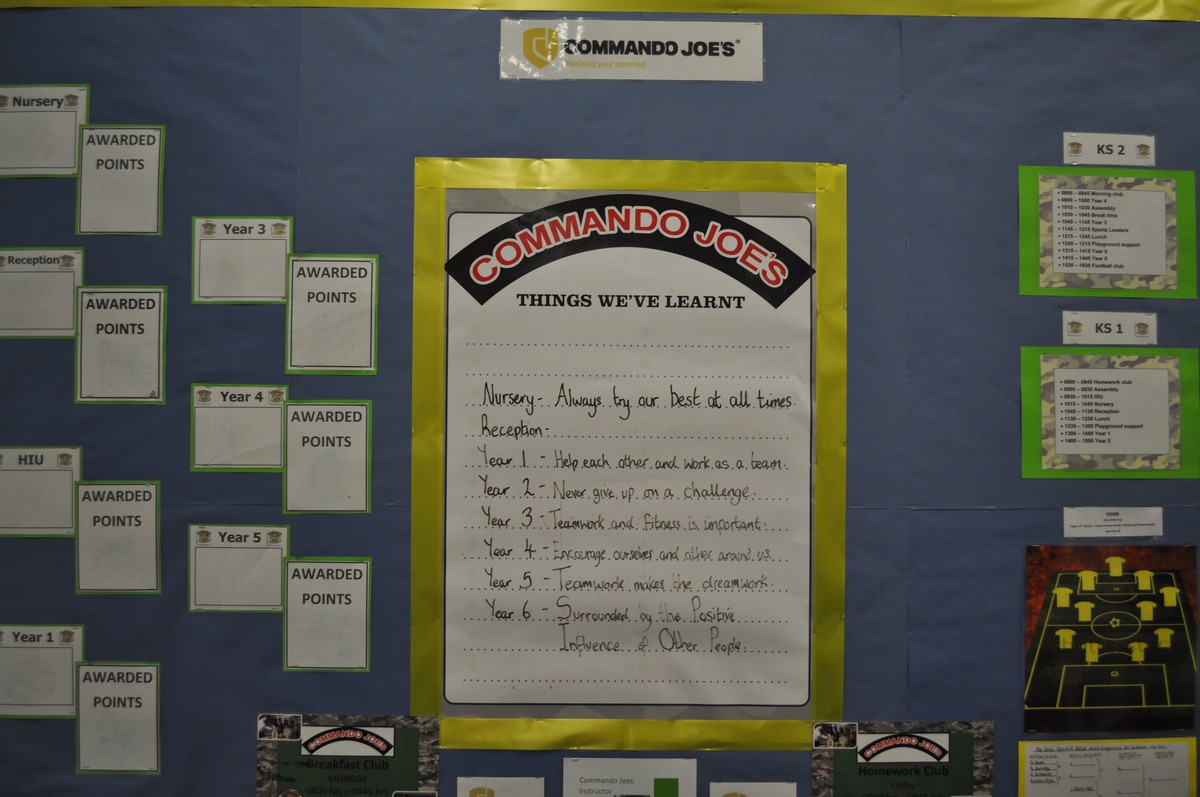 COMMANDO JOE'S®
Realising your potential
Nursery
AWARDED
POINTS
Reception
AWARDED
POINTS
HIU
AWARDED
POINTS
Year 1
AWARDED
POINTS
Year 3
AWARDED
POINTS
Year 4
AWARDED
POINTS
Year 5
AWARDED
POINTS
COMMANDO JOE'S
THINGS WE'VE LEARNT
Nursery - Always try our best at all times.
Reception -
Year 1 - Help each other and work as a team.
Year 2 - Never give up on a challenge.
Year 3 - Teamwork and fitness is important.
Year 4 - Encourage ourselves and other around us.
Year 5 - Teamwork makes the dreamwork.
Year 6 - Surrounded by the Positive
Influence of Other People.
KS 2
• 0800 – 0845 Morning club
• 0900 – 1000 Year 4
• 1010 – 1030 Assembly
• 1030 – 1045 Break time
• 1045 – 1145 Year 3
• 1145 – 1215 Sports Leaders
• 1215 – 1245 Lunch
• 1245 – 1315 Playground support
• 1315 – 1415 Year 5
• 1415 – 1445 Year 6
• 1530 – 1630 Football club
KS 1
• 0800 – 0845 Homework club
• 0900 – 0930 Assembly
• 0930 – 1015 HIU
• 1015 – 1045 Nursery
• 1045 – 1130 Reception
• 1130 – 1230 Lunch
• 1230 – 1300 Playground support
• 1300 – 1400 Year 1
• 1400 – 1500 Year 2
COMMANDO JOE'S
Breakfast Club
MONDAY
0800 hrs – 0845 hrs
Commando Joes
Instructor
COMMANDO JOE'S
Homework Club
Friday